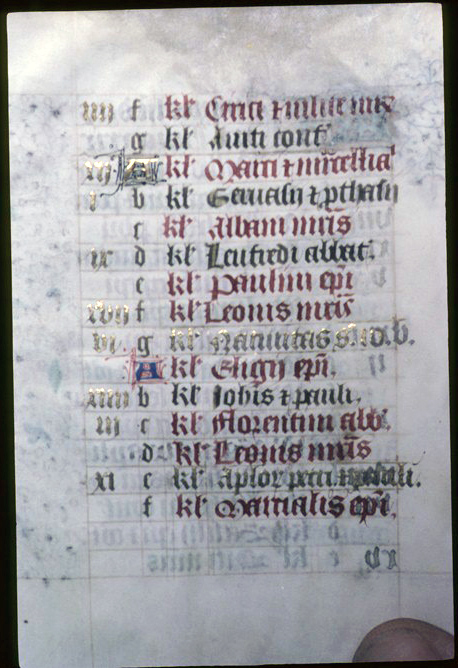 iiii f kl Cirici & iulite mr̄
g kl Auiti conf
A kl Marci & marcellia
i b kl Geruasii & pthasii
c kl Albani mr̄is
ix d kl Leufredi abbat.
e kl Paulini ep̄i
xvii f kl Leonis mr̄is
vi g kl Natiuitas s. io. b.
A kl Eligij ep̄i.
xiiii b kl Joh̄is & pauli.
iii c kl Florentini abb
d kl Leonis mr̄is
xi e kl Ap̄lor petri & pauli.
f kl Martialis ep̄i.